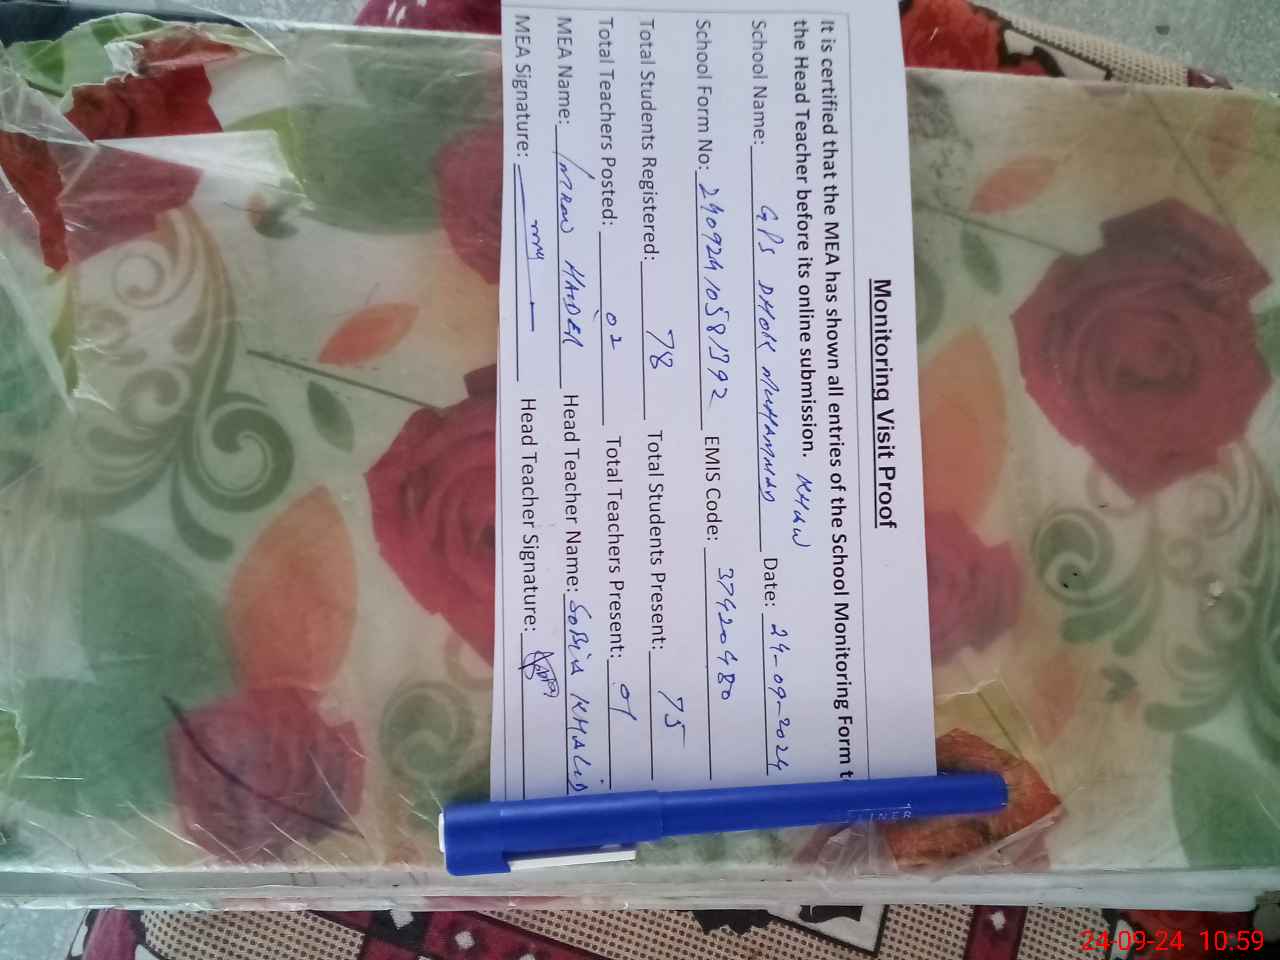 Monitoring Visit Proof
It is certified that the MEA has shown all entries of the School Monitoring Form t
the Head Teacher before its online submission. KHAN
School Name: GPS DHOK MUHAMMAD Date: 24-09-2024
School Form No: 24092410581392 EMIS Code: 37420480
Total Students Registered: 78 Total Students Present: 75
Total Teachers Posted: 02 Total Teachers Present: 01
MEA Name: IMRAN HAIDER Head Teacher Name: SOBIA KHALID
MEA Signature: Head Teacher Signature:
LINER
24-09-24 10:59